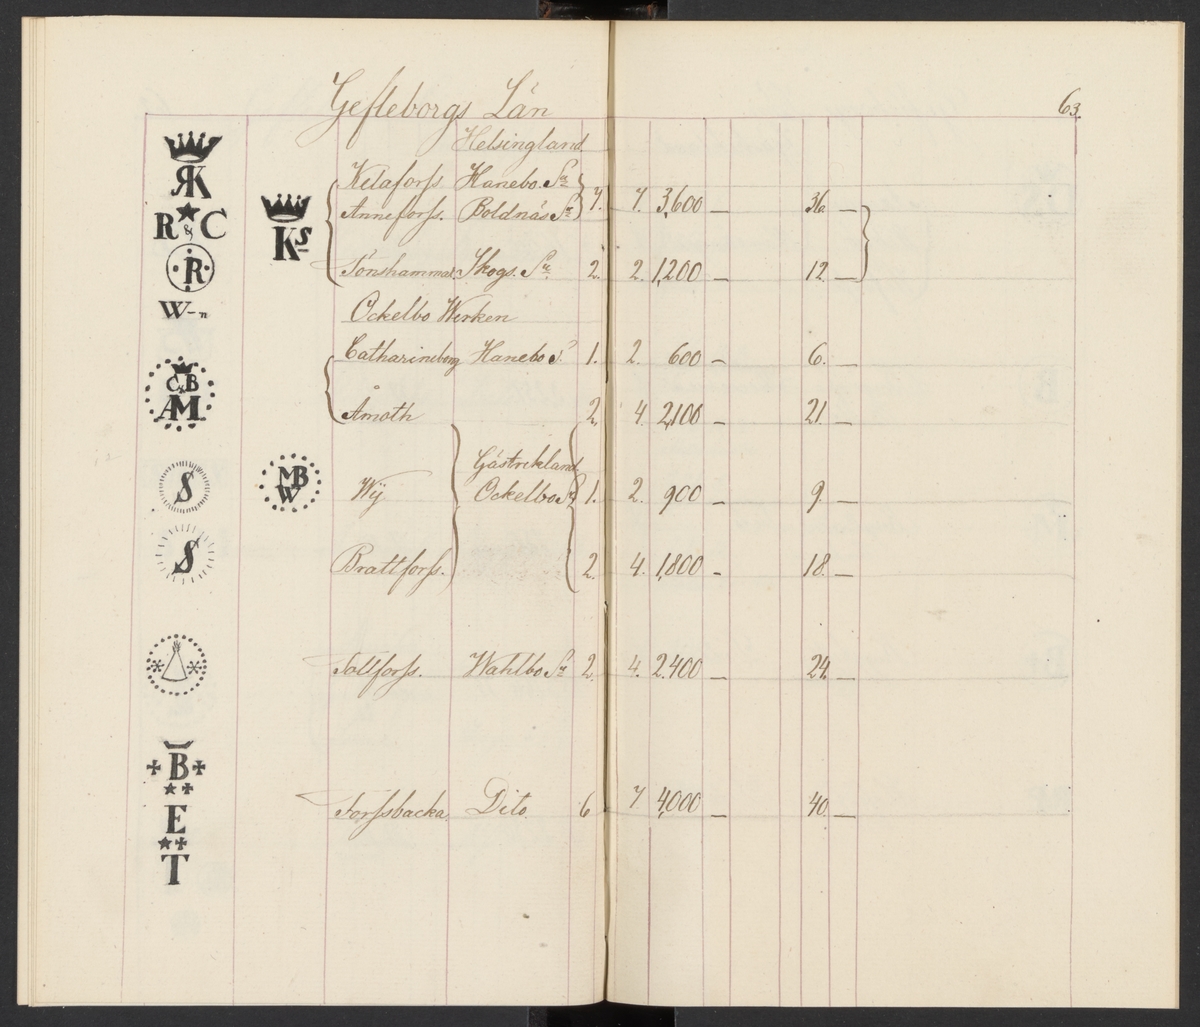 Gefleborgs Län
63.
Helsingland
Kilaforss Hanebo Sn
Anneforss. Boldnäs Sn 7. 7. 3,600 — 36. —
Tönshammar Skogs. Sn 2. 2. 1,200 — 12. —
Ockelbo Werken
Catharineberg Hanebo S. 1. 2. 600 — 6. —
Åmoth 2. 4. 2,100 — 21. —
Gästrikland
Wij Ockelbo Sn 1. 2. 900 — 9. —
Brattforss. 2. 4. 1,800 — 18. —
Tollforss. Wahlbo Sn 2. 4. 2,400 — 24. —
Forssbacka Dito 6 7 4,000 — 40. —
RK
R & C
R
W-n
Ks
C&B
AM
S
MB
W
S
B
E
T